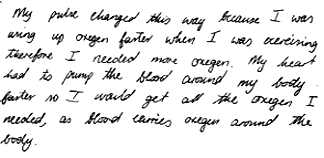 My pulse changed this way because I was
using up oxegen faster when I was exercising
therefore I needed more oxegen. My heart
had to pump the blood around my body
faster so I would get all the oxegen I
needed, as blood carries oxegen around the
body.